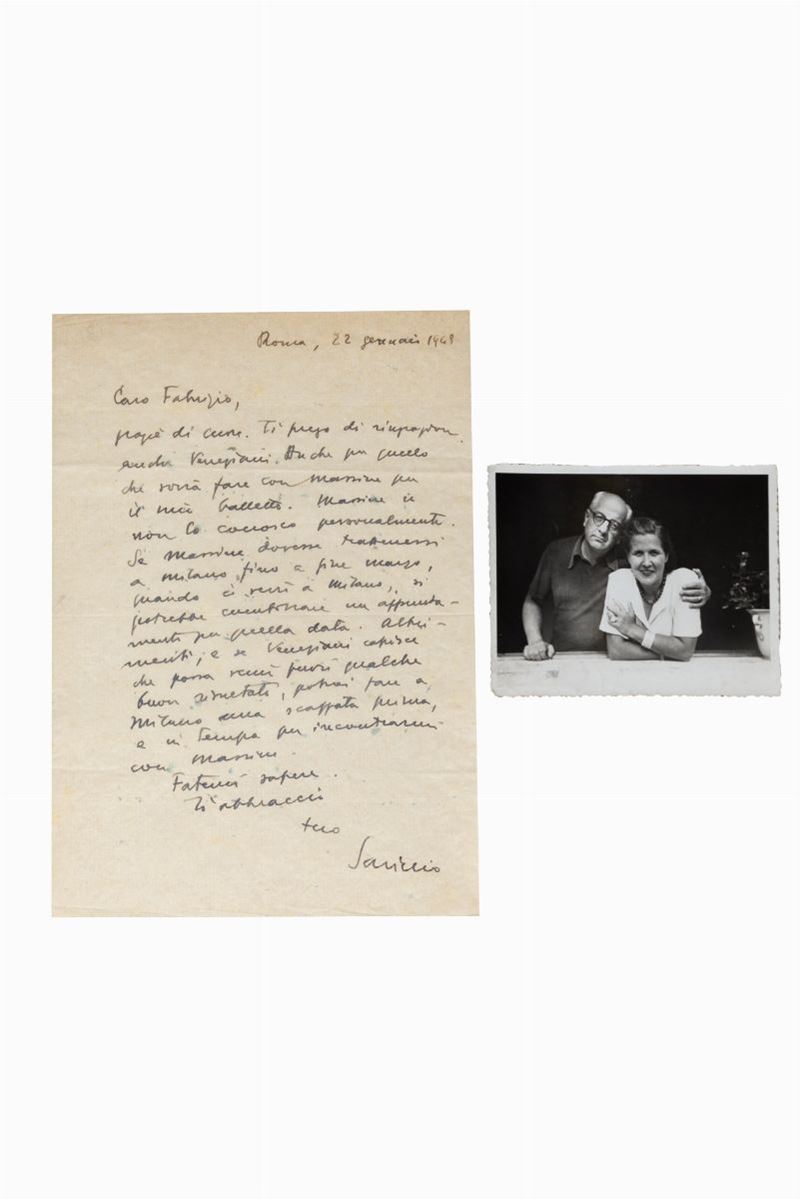 Roma, 22 gennaio 1948
Caro Fabrizio,
grazie di cuore. Ti prego di ringraziare
anche Veneziani. Anche per quello
che vorrà fare con Massine per
il mio balletto. Massine io
non lo conosco personalmente.
Se Massine dovesse trattenersi
a Milano fino a fine marzo,
quando ci verrò a Milano, si
potrebbe combinare un appunta-
mento per quella data. Altri-
menti, e se Veneziani capisce
che possa venir fuori qualche
buon risultato, potrei fare a
Milano una scappata prima,
e in tempo per incontrarmi
con Massine.
Fatemi sapere.
Ti abbraccio
tuo
Savinio